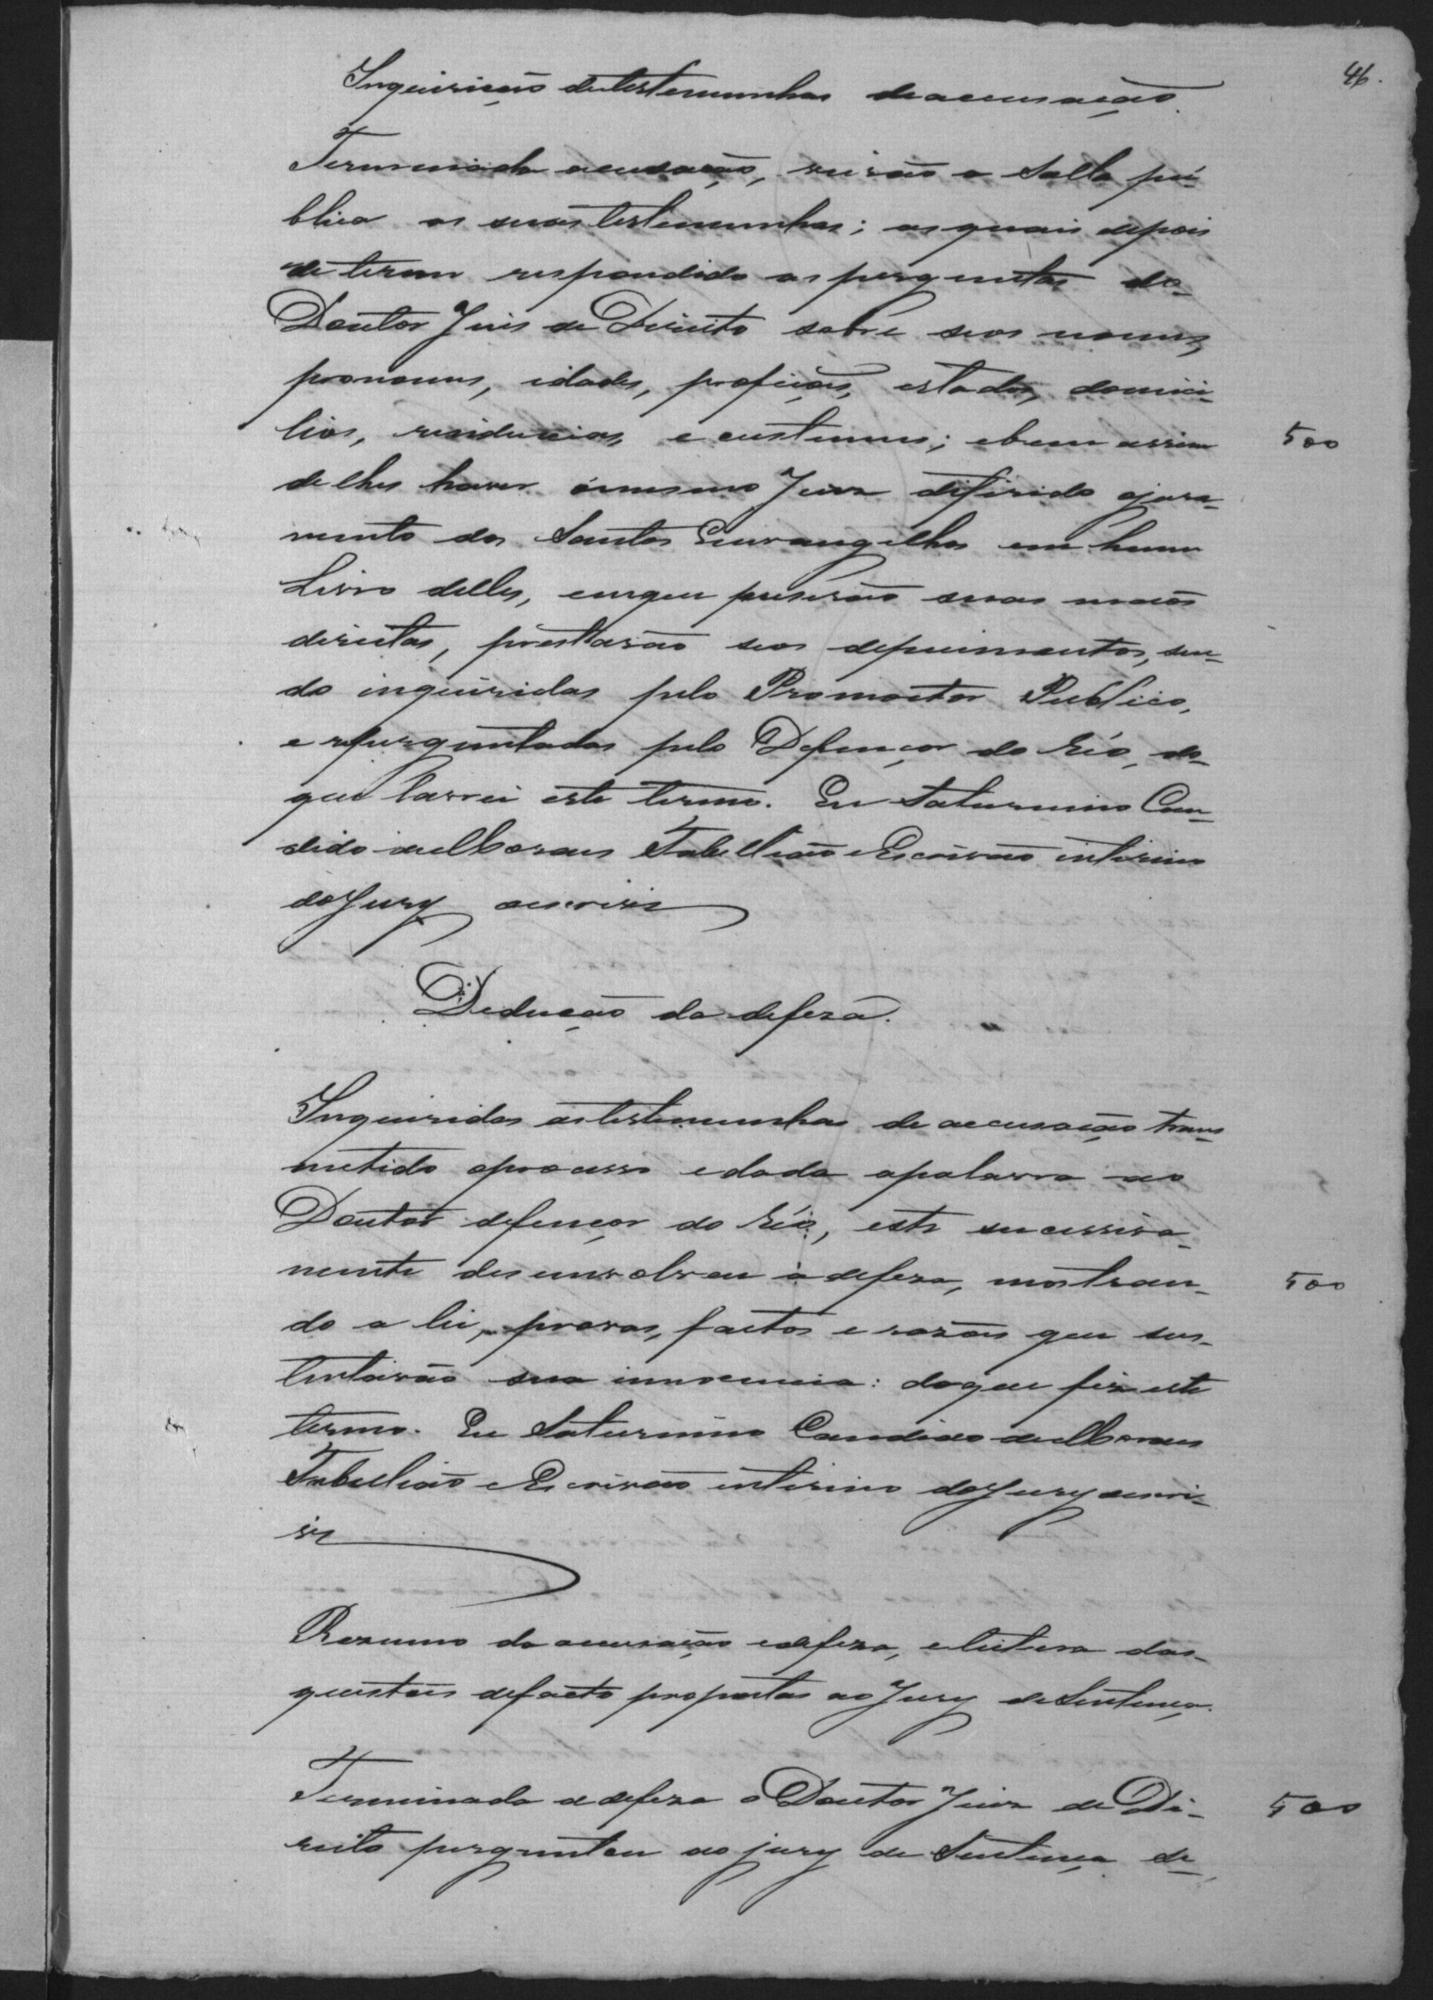 46.
Inquirição de testemunhas de accusação.
Terminada accusação, virão a Salla pu-
blica as suas testemunhas; as quais depois
de terem respondido as perguntas do
Doutor Juis de Direito sobre seos nomes,
pronomes, idades, profições, estados, domici-
lios, residencias, e custumes; e bem assim 500
de lhes haver o mesmo Juiz diferido o jura-
mento dos Santos Euvangelhos em hum
Livro delles, em que puserão suas mãos
direitas, prestarão seos depuimentos, sen-
do inquiridas pelo Promoctor Publico,
e reperguntadas pelo Defençor do Réo, do
que lavrei este termo. Eu Saturnino Can-
dido de Moraes Tabellião e Escrivão interino
do Jury escrivi
Deducção da defeza.
Inqueridas as testemunhas de accusação trans
metido o processo e dada a palavra ao
Doutor defençor do Réo, este sucessiva-
mente desenvolveu a defeza, mostran- 500
do a lei, provas, factos e razões que sus-
tentavão sua innocencia: do que fiz este
termo. Eu Saturnino Candido de Moraes
Tabellião e Escrivão interino do Jury escri-
vi
Rezumo da accusação e defeza, e leitura das
questões de facto propostas ao Jury de Sentença.
Terminada a defeza o Doutor Juiz de Di- 500
reito perguntou ao jury de Sentença se